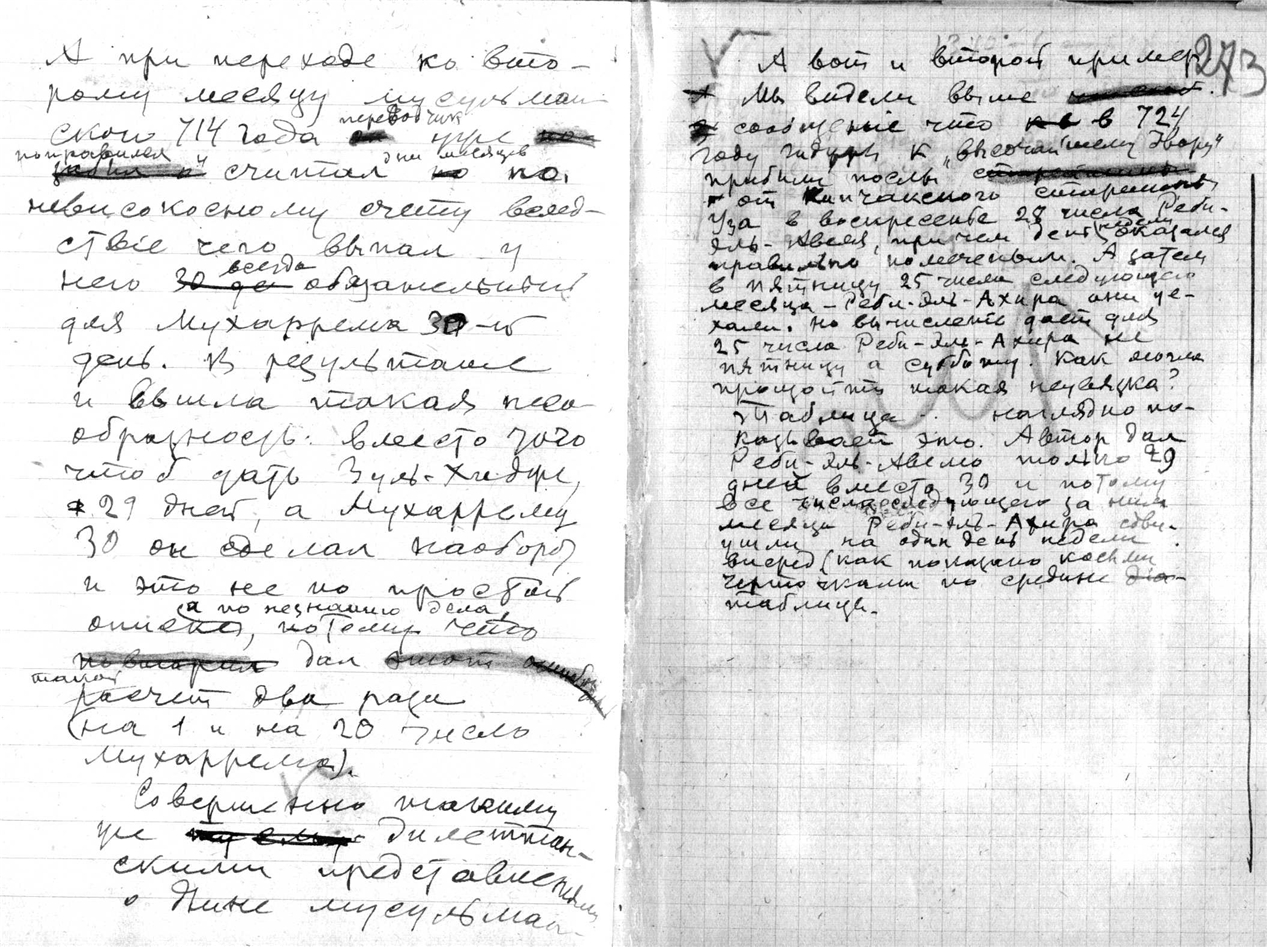 А при переходе ко вто-
рому месяцу мусульман-
ского 714 года переводчик уже
поправился и считал дни месяцев по
невисокосному счету вслед-
ствіе чего выпал у
него всегда обязательный
для Мухаррема 30-й
день. В результате
и вышла такая несо-
образность: вместо того
чтоб дать Зуль-Хидже,
29 дней, а Мухаррему
30 он сделал наоборот
и это не по простой
описке, а по незнанию дела, потому что
дал
такой расчет два раза
(на 1 и на 20 число
Мухаррема).
Совершенно такими
же дилеттан-
скими представлениями
о длине мусульман-
273
А вот и второй пример.
Мы видели выше
сообщение что в 724
году гиджры к „высочайшему двору"
прибыли послы
от Кипчакского
Уза в воскресенье 28 числа Реби-
эль-Авеля, причем день недели оказался
правильно помеченным. А затем
в пятницу 25 числа следующего
месяца – Реби-эль-Ахира они уе-
хали. Но вычисление дает для
25 числа Реби-эль-Ахира не
пятницу а субботу. Как могла
произойти такая неувязка?
Таблица .. наглядно по-
казывает это. Автор дал
Реби-эль-Авелю только 29
дней вместо 30 и потому
все числа следующего за ним
месяца Реби-эль-Ахира сдви-
нулись на один день недели
вперед (как показано косыми
черточками по средине
таблицы.